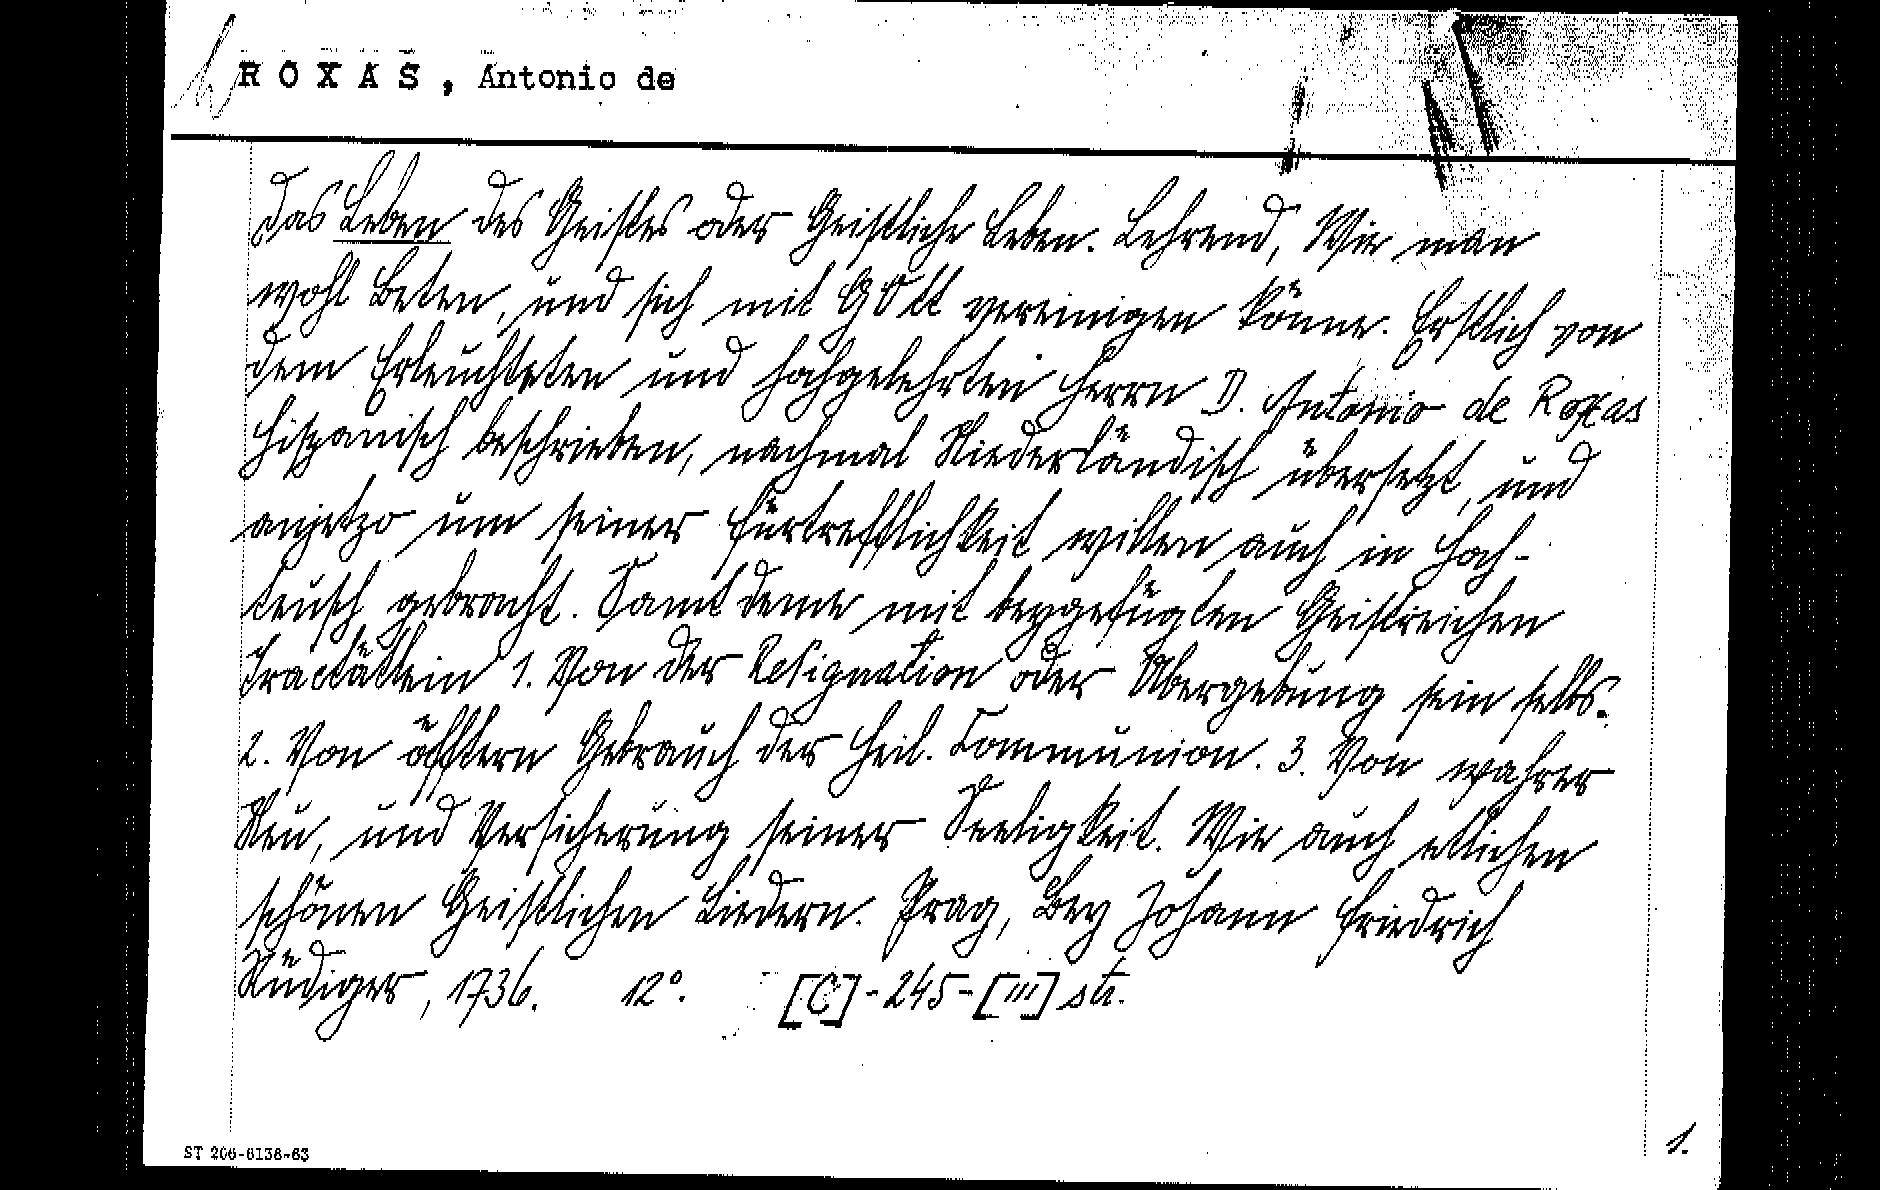 ROXAS, Antonio de
Das Leben des Geistes oder Geistliche Leben. Lehrend, Wie man
wohl Beten, und sich mit GOtt vereinigen könne. Erstlich von
dem Erleuchteten und Hochgelehrten Herrn D. Antonio de Roxas
Hispanisch beschrieben, nachmal Niederländisch übersetzt, und
anjetzo um seiner Fürtrefflichkeit willen auch in Hoch-
teutsch gebracht. Samt deme mit beygefügten Geistreichen
Tractätlein 1. Von der Resignation oder Übergebung sein selbs.
2. Von öfftern Gebrauch der Heil. Communion. 3. Von wahrer
Reu, und Versicherung seiner Seeligkeit. Wie auch etlichen
schönen Geistlichen Liedern. Prag, Bey Johann Friedrich
Rüdiger, 1736. 12°. [C]-245-[III] str.
ST 206-6138-63
1.